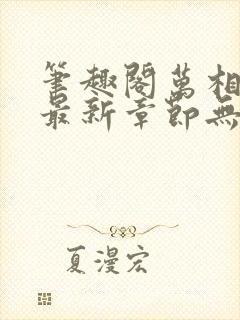 筆趣閣萬相
最新章節無
夏漫宏